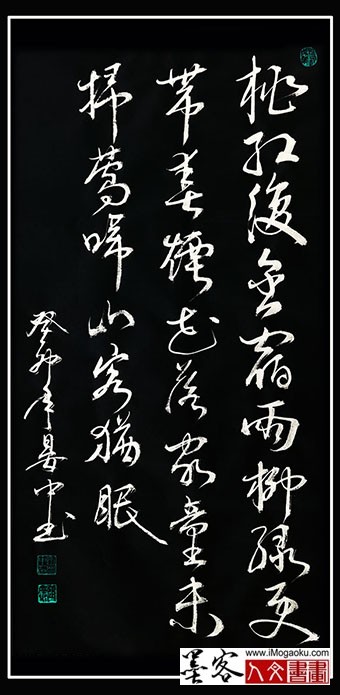 桃紅復含宿雨柳緑更
帶春煙花落家童未
掃鶯啼山客猶眠
癸卯年晏中书
墨客
www.iMogaoku.com
人文書畫